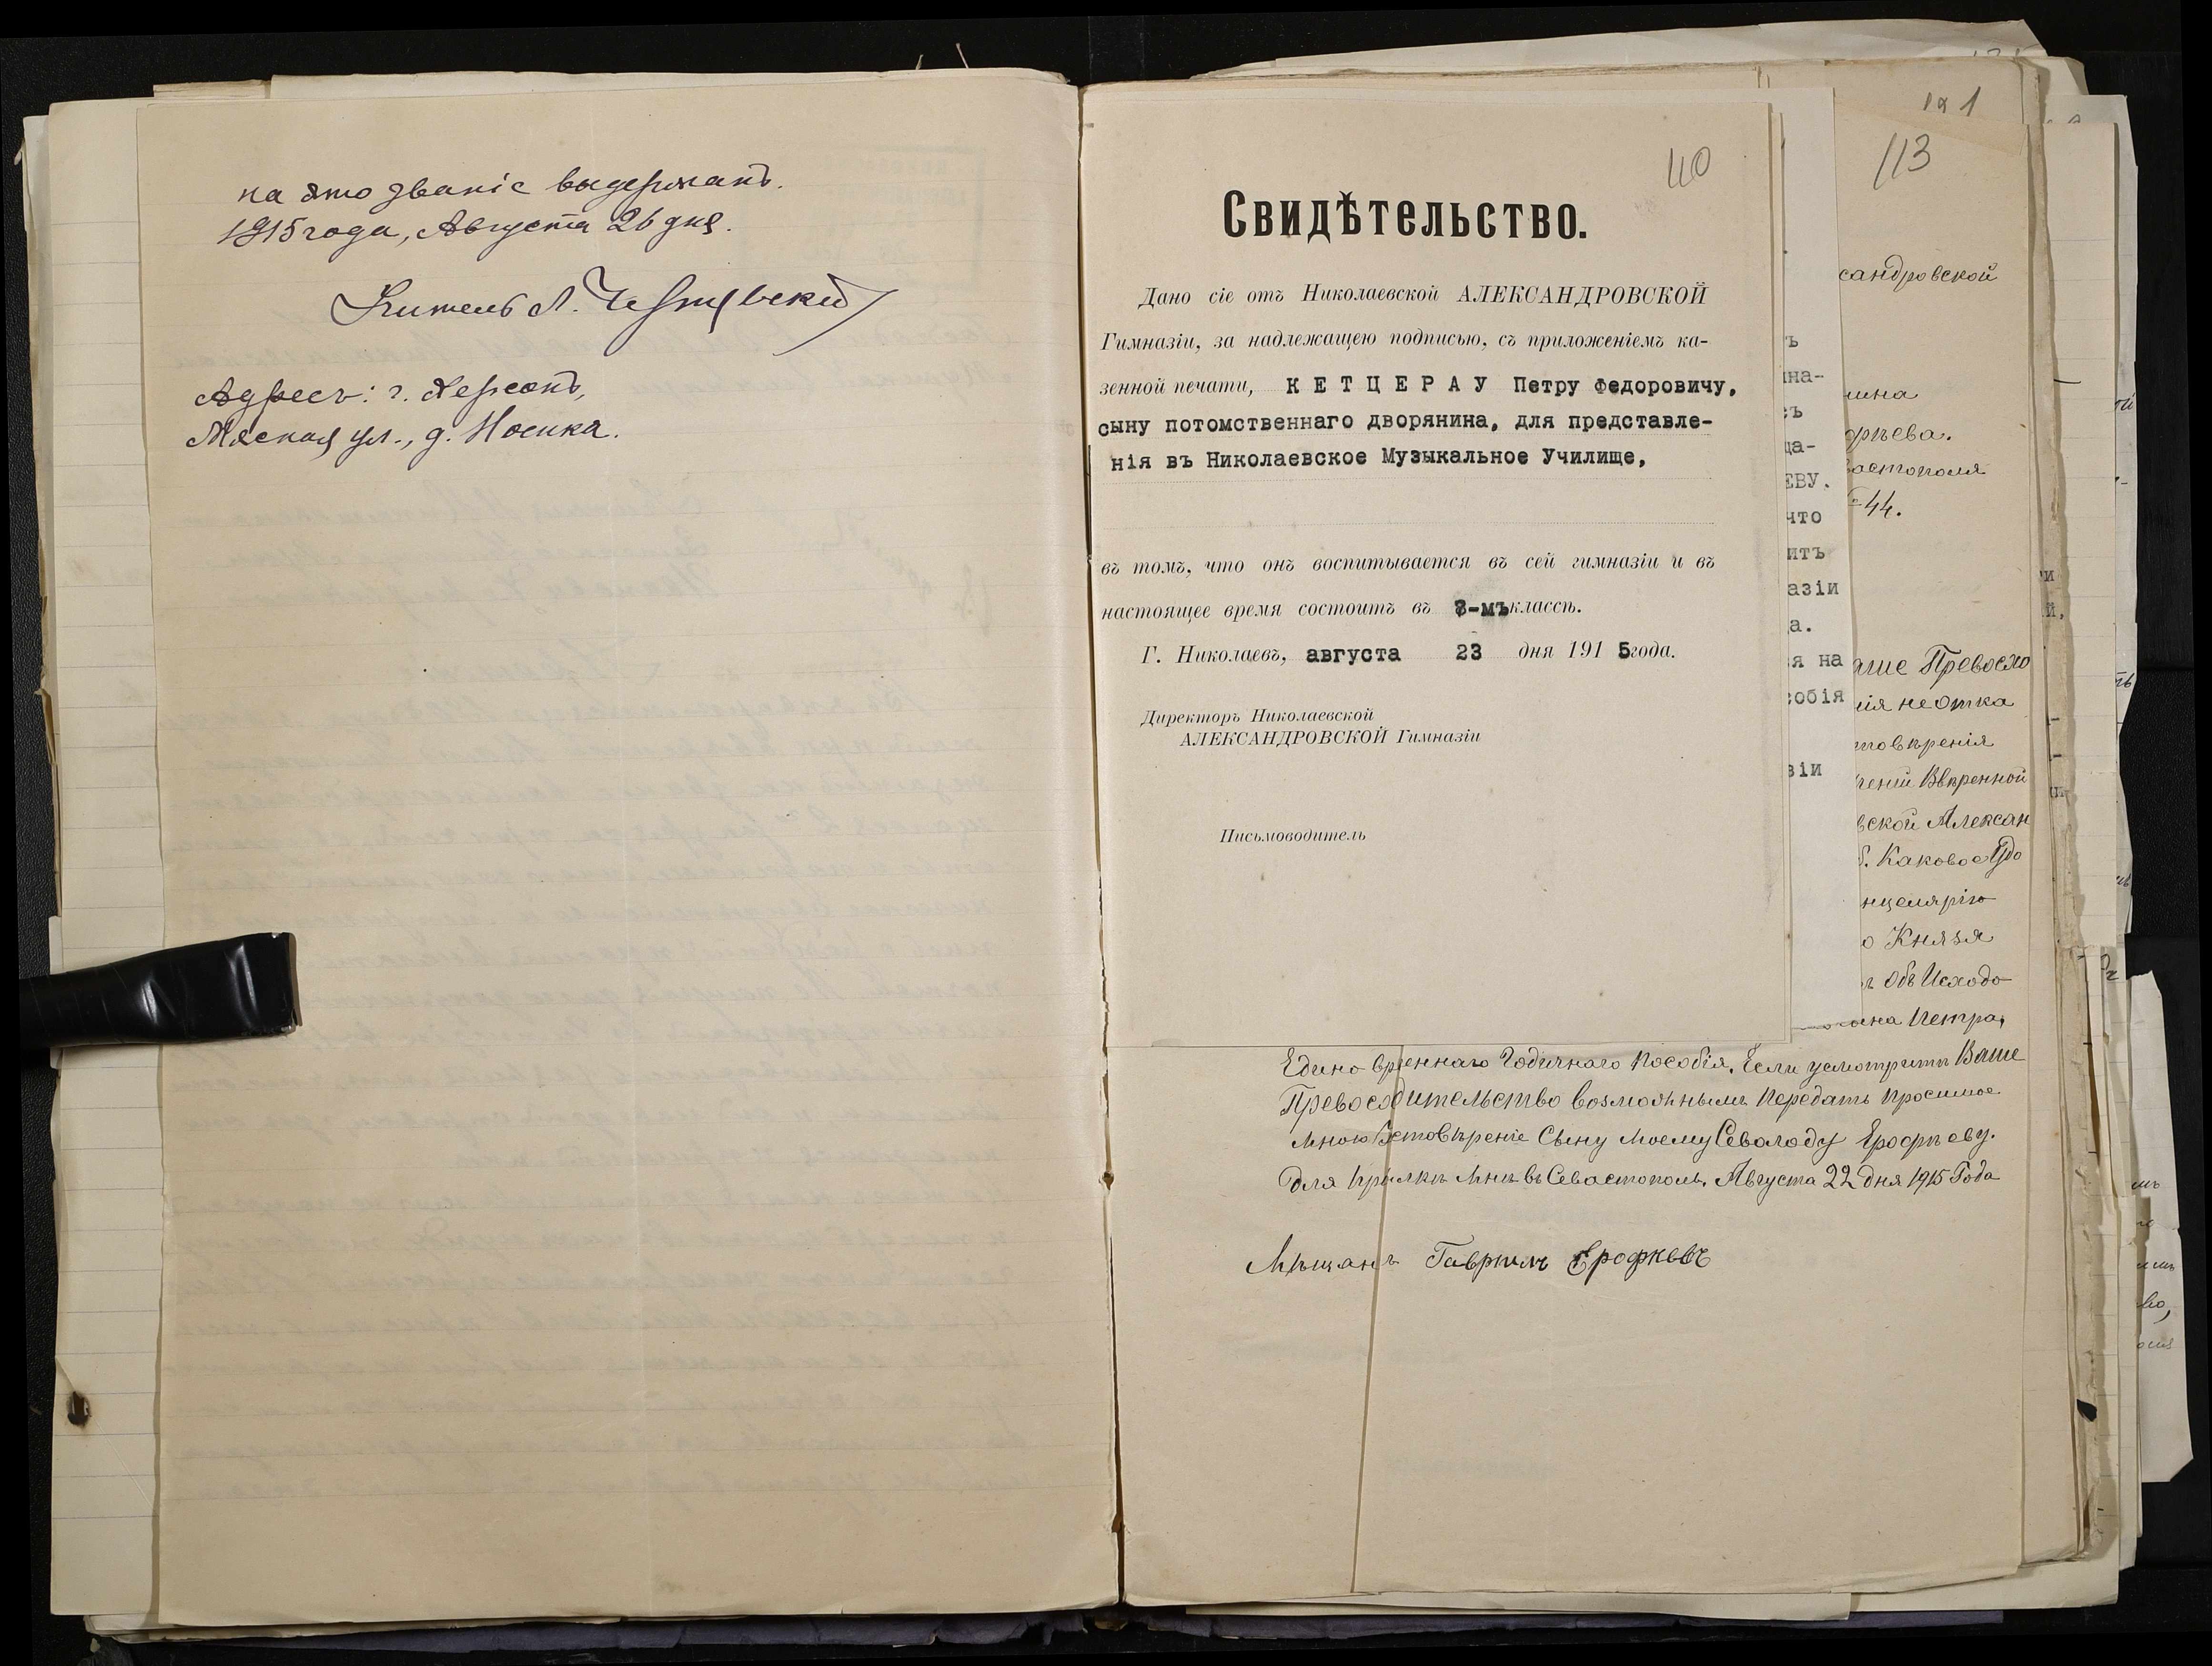 на это званіе выдержанъ.
1915 года, Августа 26 дня.
Учитель А.
Адресъ: г. Херсонъ,
Мясная ул., д. Носика.
110
Свидѣтельство.
Дано сіе отъ Николаевской АЛЕКСАНДРОВСКОЙ
Гимназіи, за надлежащею подписью, съ приложеніемъ ка-
зенной печати, К Е Т Ц Е Р А У Петру Федоровичу,
сыну потомственнаго дворянина, для представле-
нія въ Николаевское Музыкальное Училище,
въ томъ, что онъ воспитывается въ сей гимназіи и въ
настоящее время состоитъ въ 8-мъ классѣ.
Г. Николаевъ, августа 23 дня 1915 года.
Директоръ Николаевской
АЛЕКСАНДРОВСКОЙ Гимназіи
Письмоводитель
ъ
на-
съ
да-
ЕВУ.
что
итъ
азіи
а.
я на
собія
зіи
121
113
сандровской
ина
офѣева.
астополя
44.
аше Превосхо
ія не отка
товѣренія
Ввѣренной
вской Алексан
Каковое Удо
нцелярію
о Князя
Объ Исходо
ына Петра,
Едино Временнаго Годичнаго Пособія, Если усмотритъ Ваше
Превосходительство возможнымъ Передать просимое
Мною Устовѣреніе Сыну Моему Севолоду Ерофѣеву.
для Присылки Мнѣ въ Севастополь, Августа 22 дня 1915 Года
Мѣщанъ Гавриилъ Ерофѣевъ